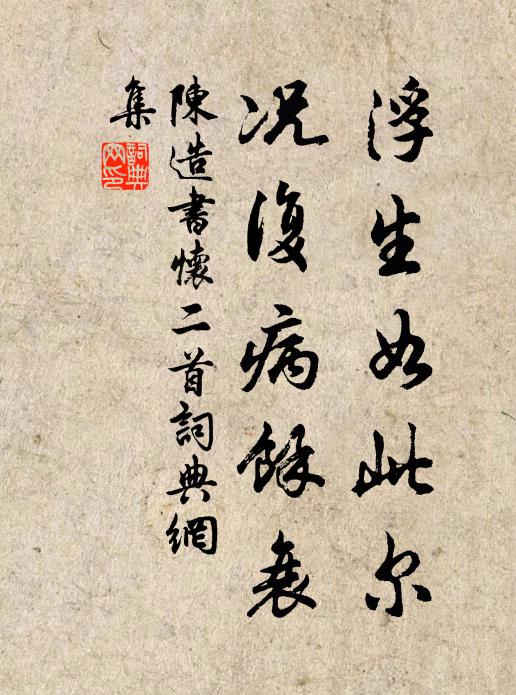 浮生如此尔
况復病餘衰
陳造書懷二首詞典網
集
詞典網印